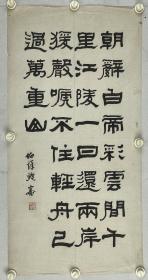 朝辭白帝彩雲間千
里江陵一日還兩岸
猨聲嗁不住輕舟已
過萬重山